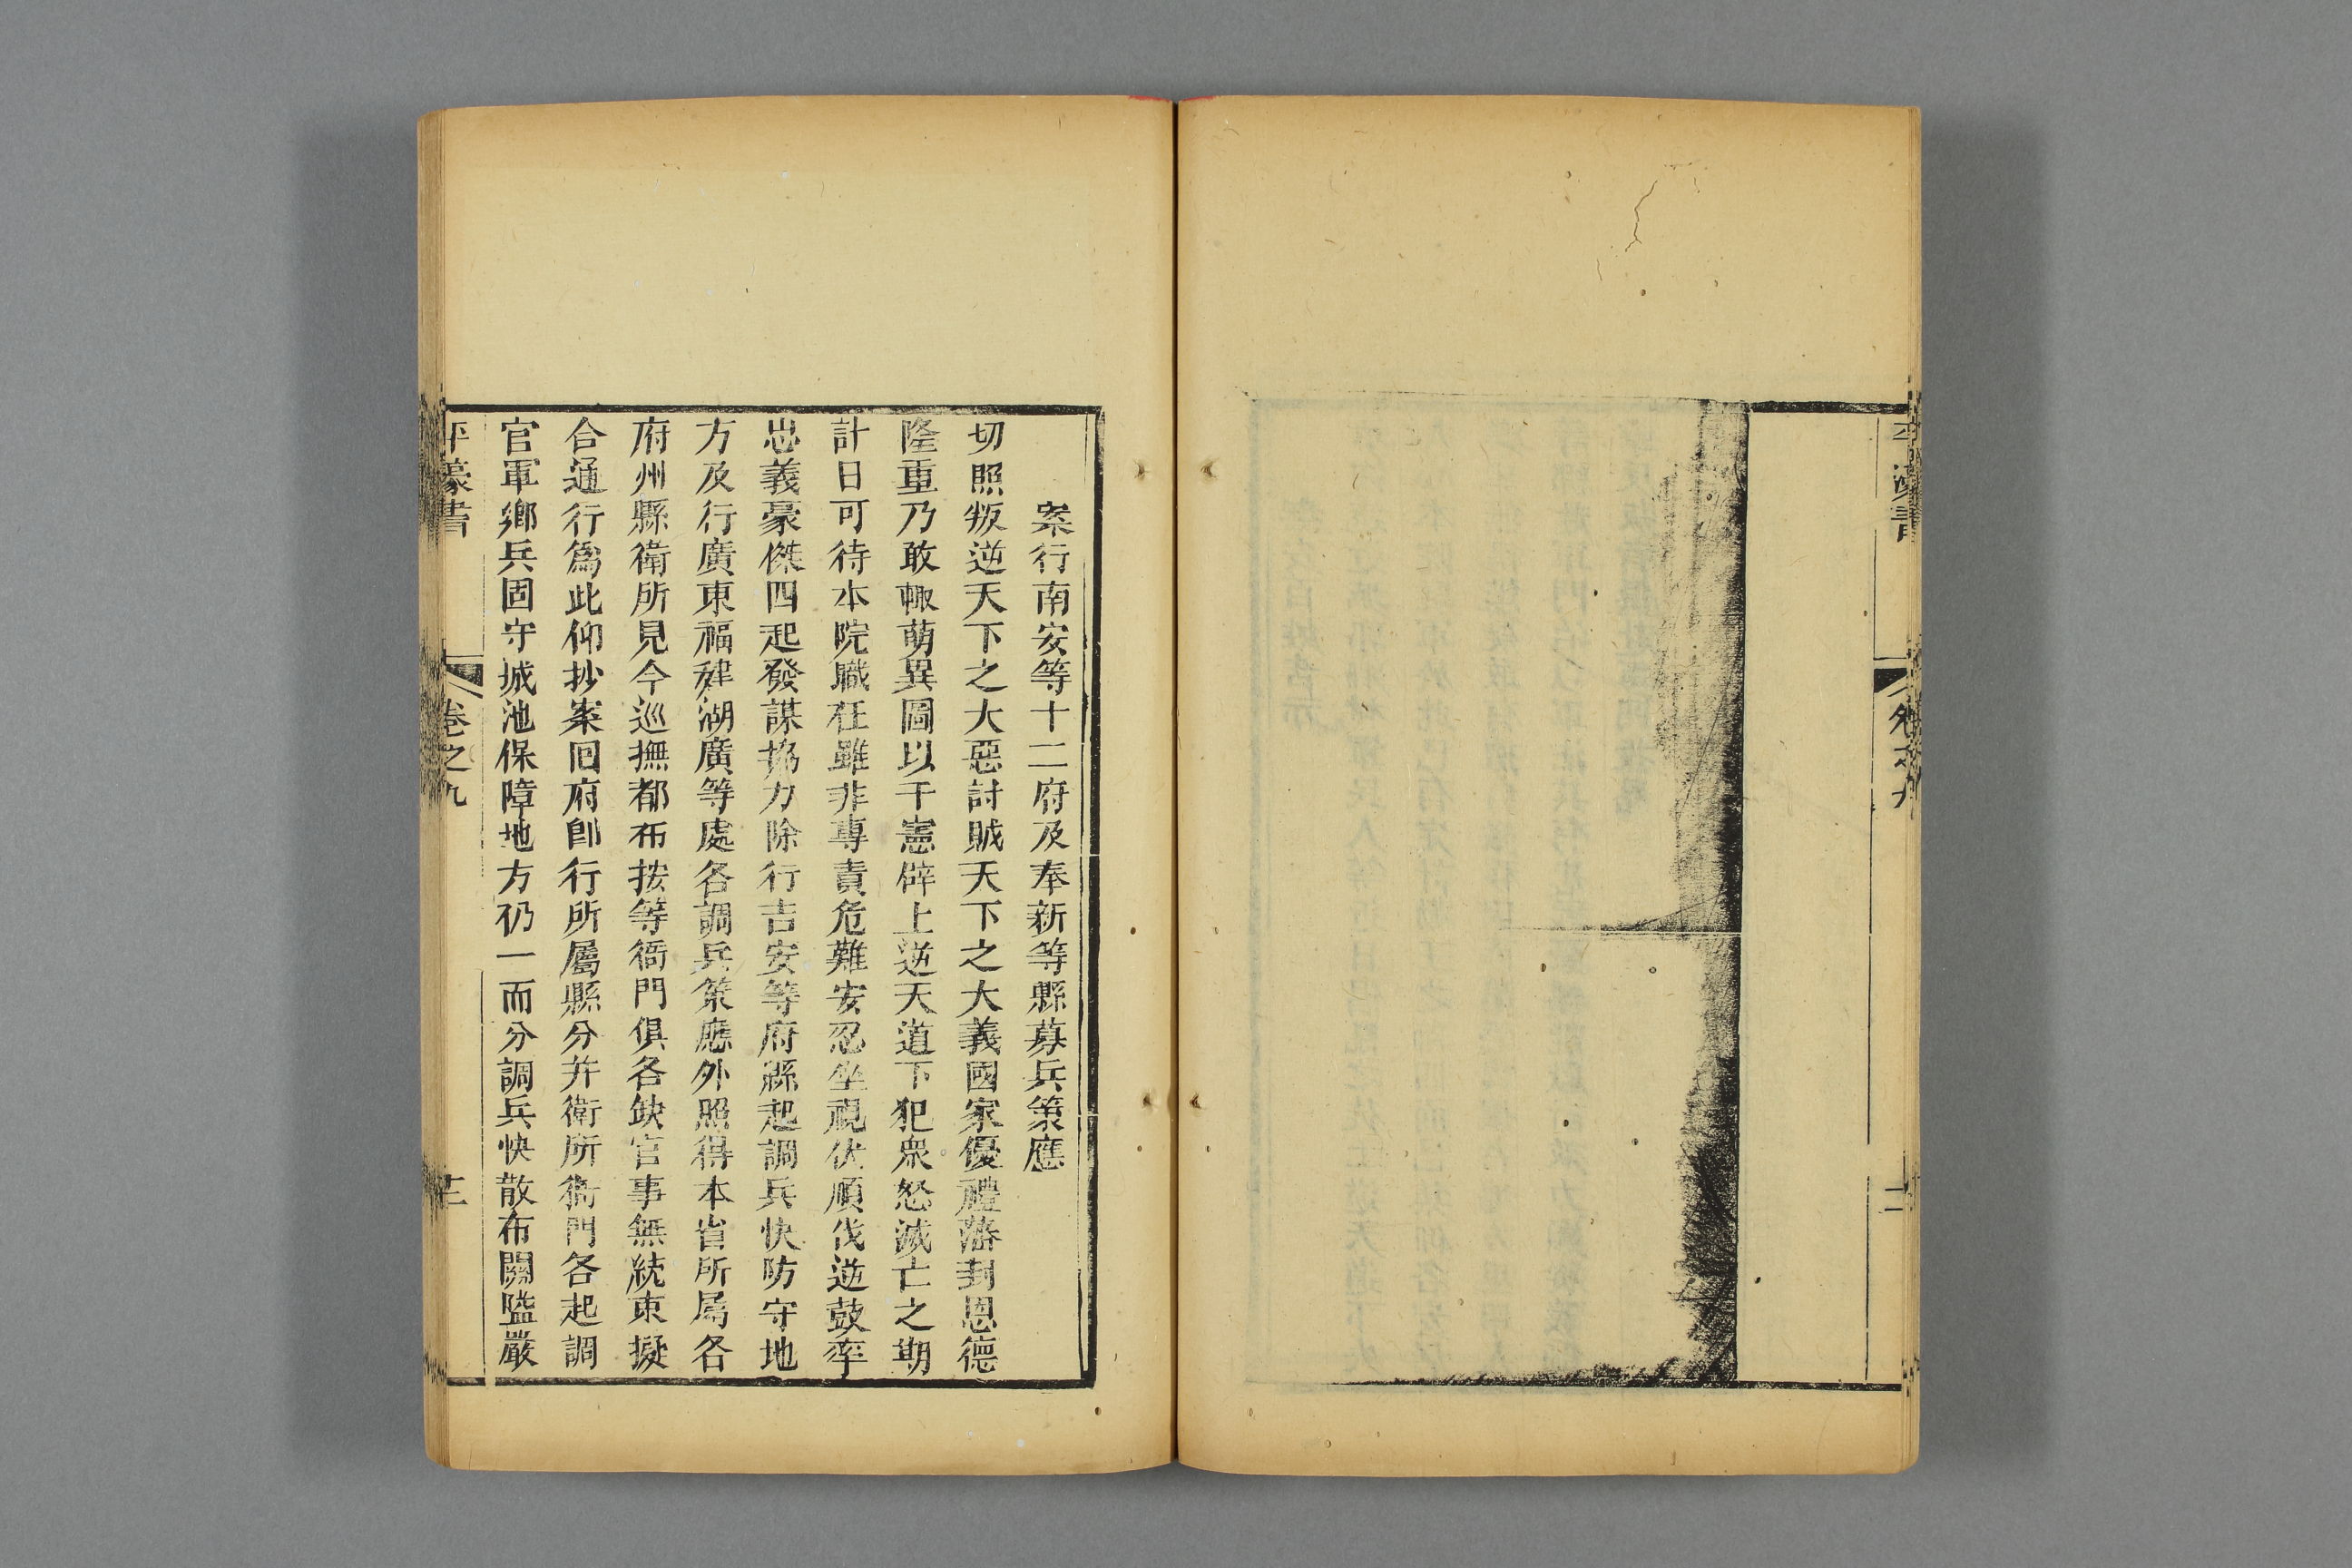 平濠書
卷之九
二
案行南安等十二府及奉新等縣募兵策應
切照叛逆天下之大惡討賊天下之大義國家優禮藩封恩德
隆重乃敢輙萌異圖以干憲辟上逆天道下犯衆怒滅亡之期
計日可待本院職任雖非專責危難安忍坐視伏順伐逆鼓率
忠義豪傑四起發謀協力除行吉安等府縣起調兵快防守地
方及行廣東福建湖廣等處各調兵策應外照得本省所屬各
府州縣衛所見今巡撫都布按等衙門俱各缺官事無統束擬
合通行爲此仰抄案回府卽行所屬縣分并衛所衙門各起調
官軍鄉兵固守城池保障地方仍一而分調兵快散布關隘嚴
平濠書
卷之九